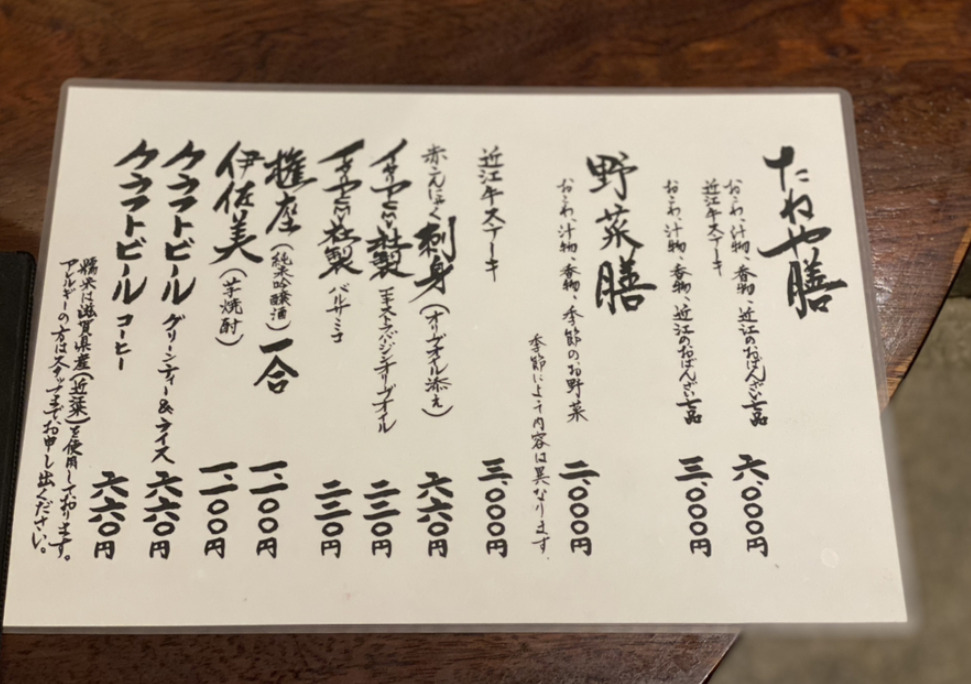 たねや膳
おこわ、汁物、香物、近江のおばんざい七品
近江牛ステーキ
六、〇〇〇円
おこわ、汁物、香物、近江のおばんざい七品
三、〇〇〇円
野菜膳
おこわ、汁物、香物、季節のお野菜
二、〇〇〇円
季節によって内容は異なります。
近江牛ステーキ
三、〇〇〇円
赤こんにゃく刺身(オリーブオイル添え)
六六〇円
イサリヤヒーロー社製
エキストラバージンオリーブオイル
二二〇円
社製 バルサミコ
二二〇円
權座(純米吟醸酒)一合
一、一〇〇円
伊佐美(芋焼酎)
一、一〇〇円
クラフトビール グリーンティー&ライス
六六〇円
クラフトビール コーヒー
六六〇円
糯米は滋賀県産(近江)を使用しております。
アレルギーの方はスタッフまでお申し出ください。